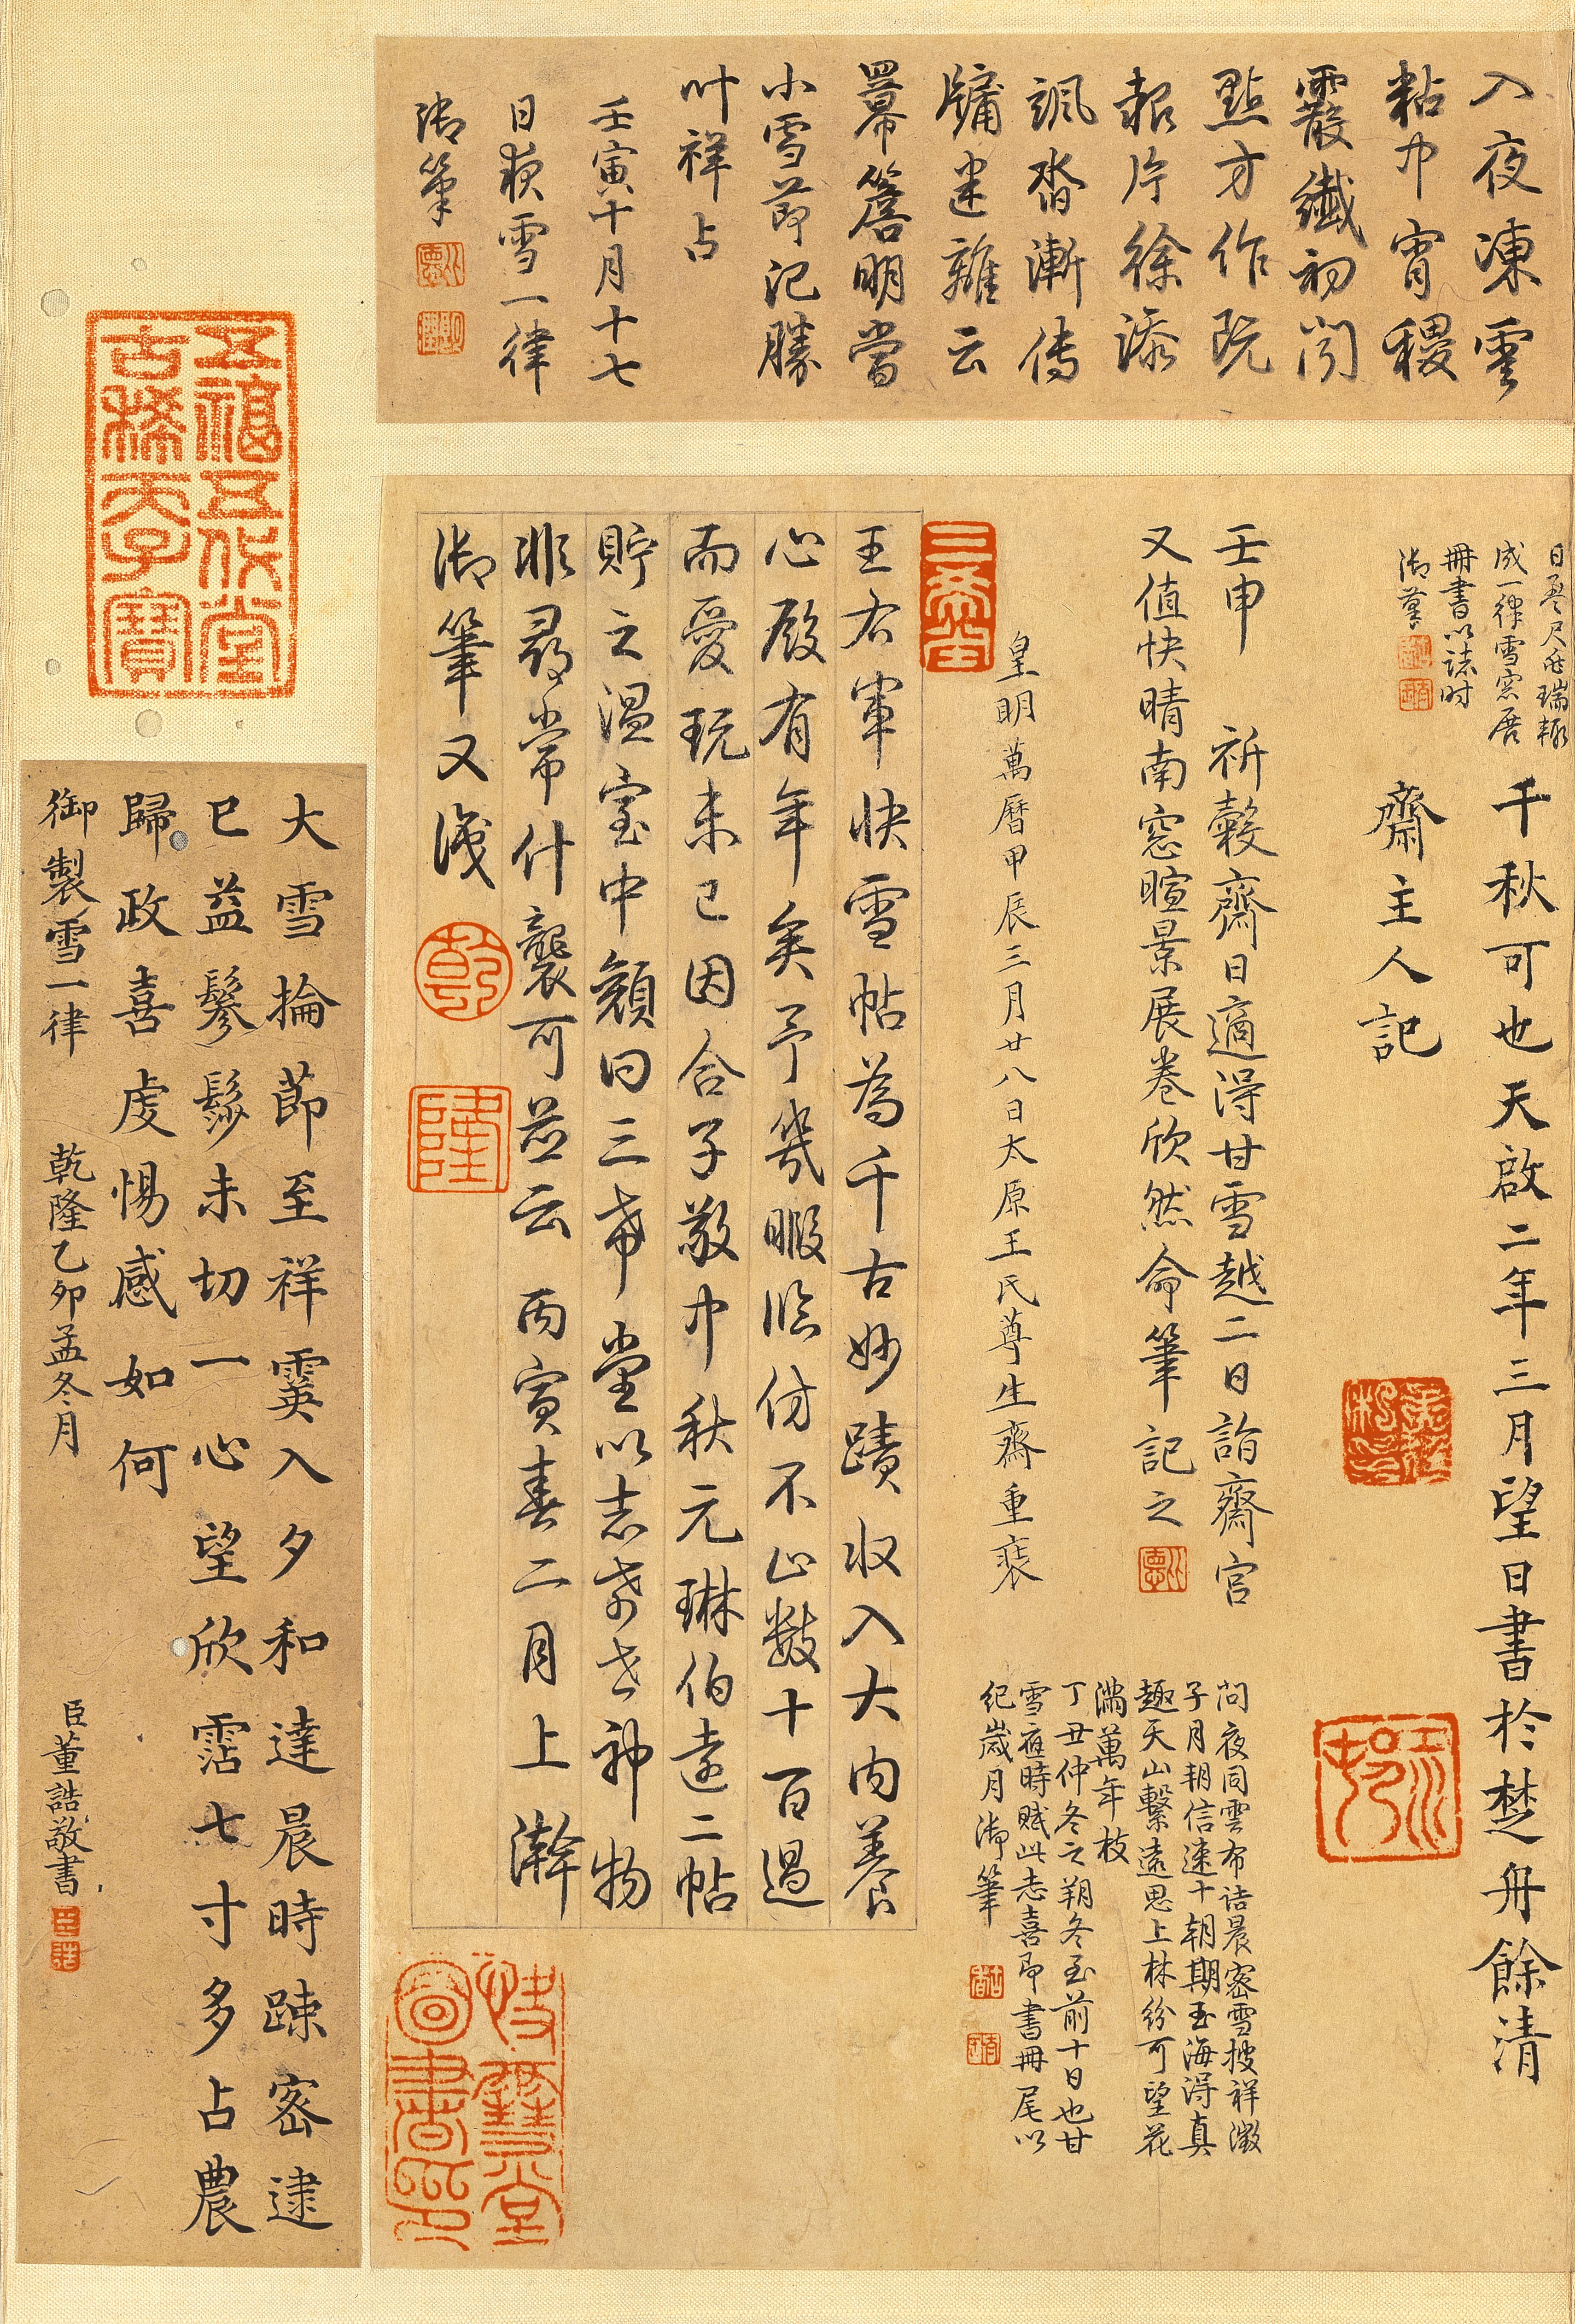 入夜凍雲
黏中宵稷
霰纖初閃
點方作玩
報片徐添
颯沓漸傳
牖迷離云
冪簷明當
小雪節記勝
叶祥占
壬寅十月十七
日夜雪一律
御筆
日盈尺瑞
成一律雪窓展
冊書以誌時
御筆
千秋可也天啟二年三月望日書於楚舟餘清
齋主人記
壬申 祈穀齋日適得甘雪越二日詣齋宮
又值快晴南窓暄景展卷欣然命筆記之
皇明萬曆甲辰三月廿八日太原王氏尊生齋重裝
問夜同雲布詰晨密雪披祥徵
子月朝信速十朝期玉海得真
趣天山繫遠思上林紛可望花
滿萬年枝
丁丑仲冬之朔冬至前十日也甘
雪應時賦此志喜即書冊尾以
紀歲月御筆
三希堂
王右軍快雪帖為千古妙蹟收入大內養
心殿有年矣予幾暇臨仿不止數十百過
而愛玩未已因合子敬中秋元琳伯遠二帖
貯之溫室中顏曰三希堂以志希世神物
非尋常什襲可並云 丙寅春二月上澣
御筆又識
乾
隆
快雪堂
五福五代堂
古稀天子寶
大雪掄節至祥霙入夕和達晨時踈密逮
巳益鬖鬖未切一心望欣霑七寸多占農
歸政喜虔惕感如何
御製雪一律 乾隆乙卯孟冬月 臣董誥敬書